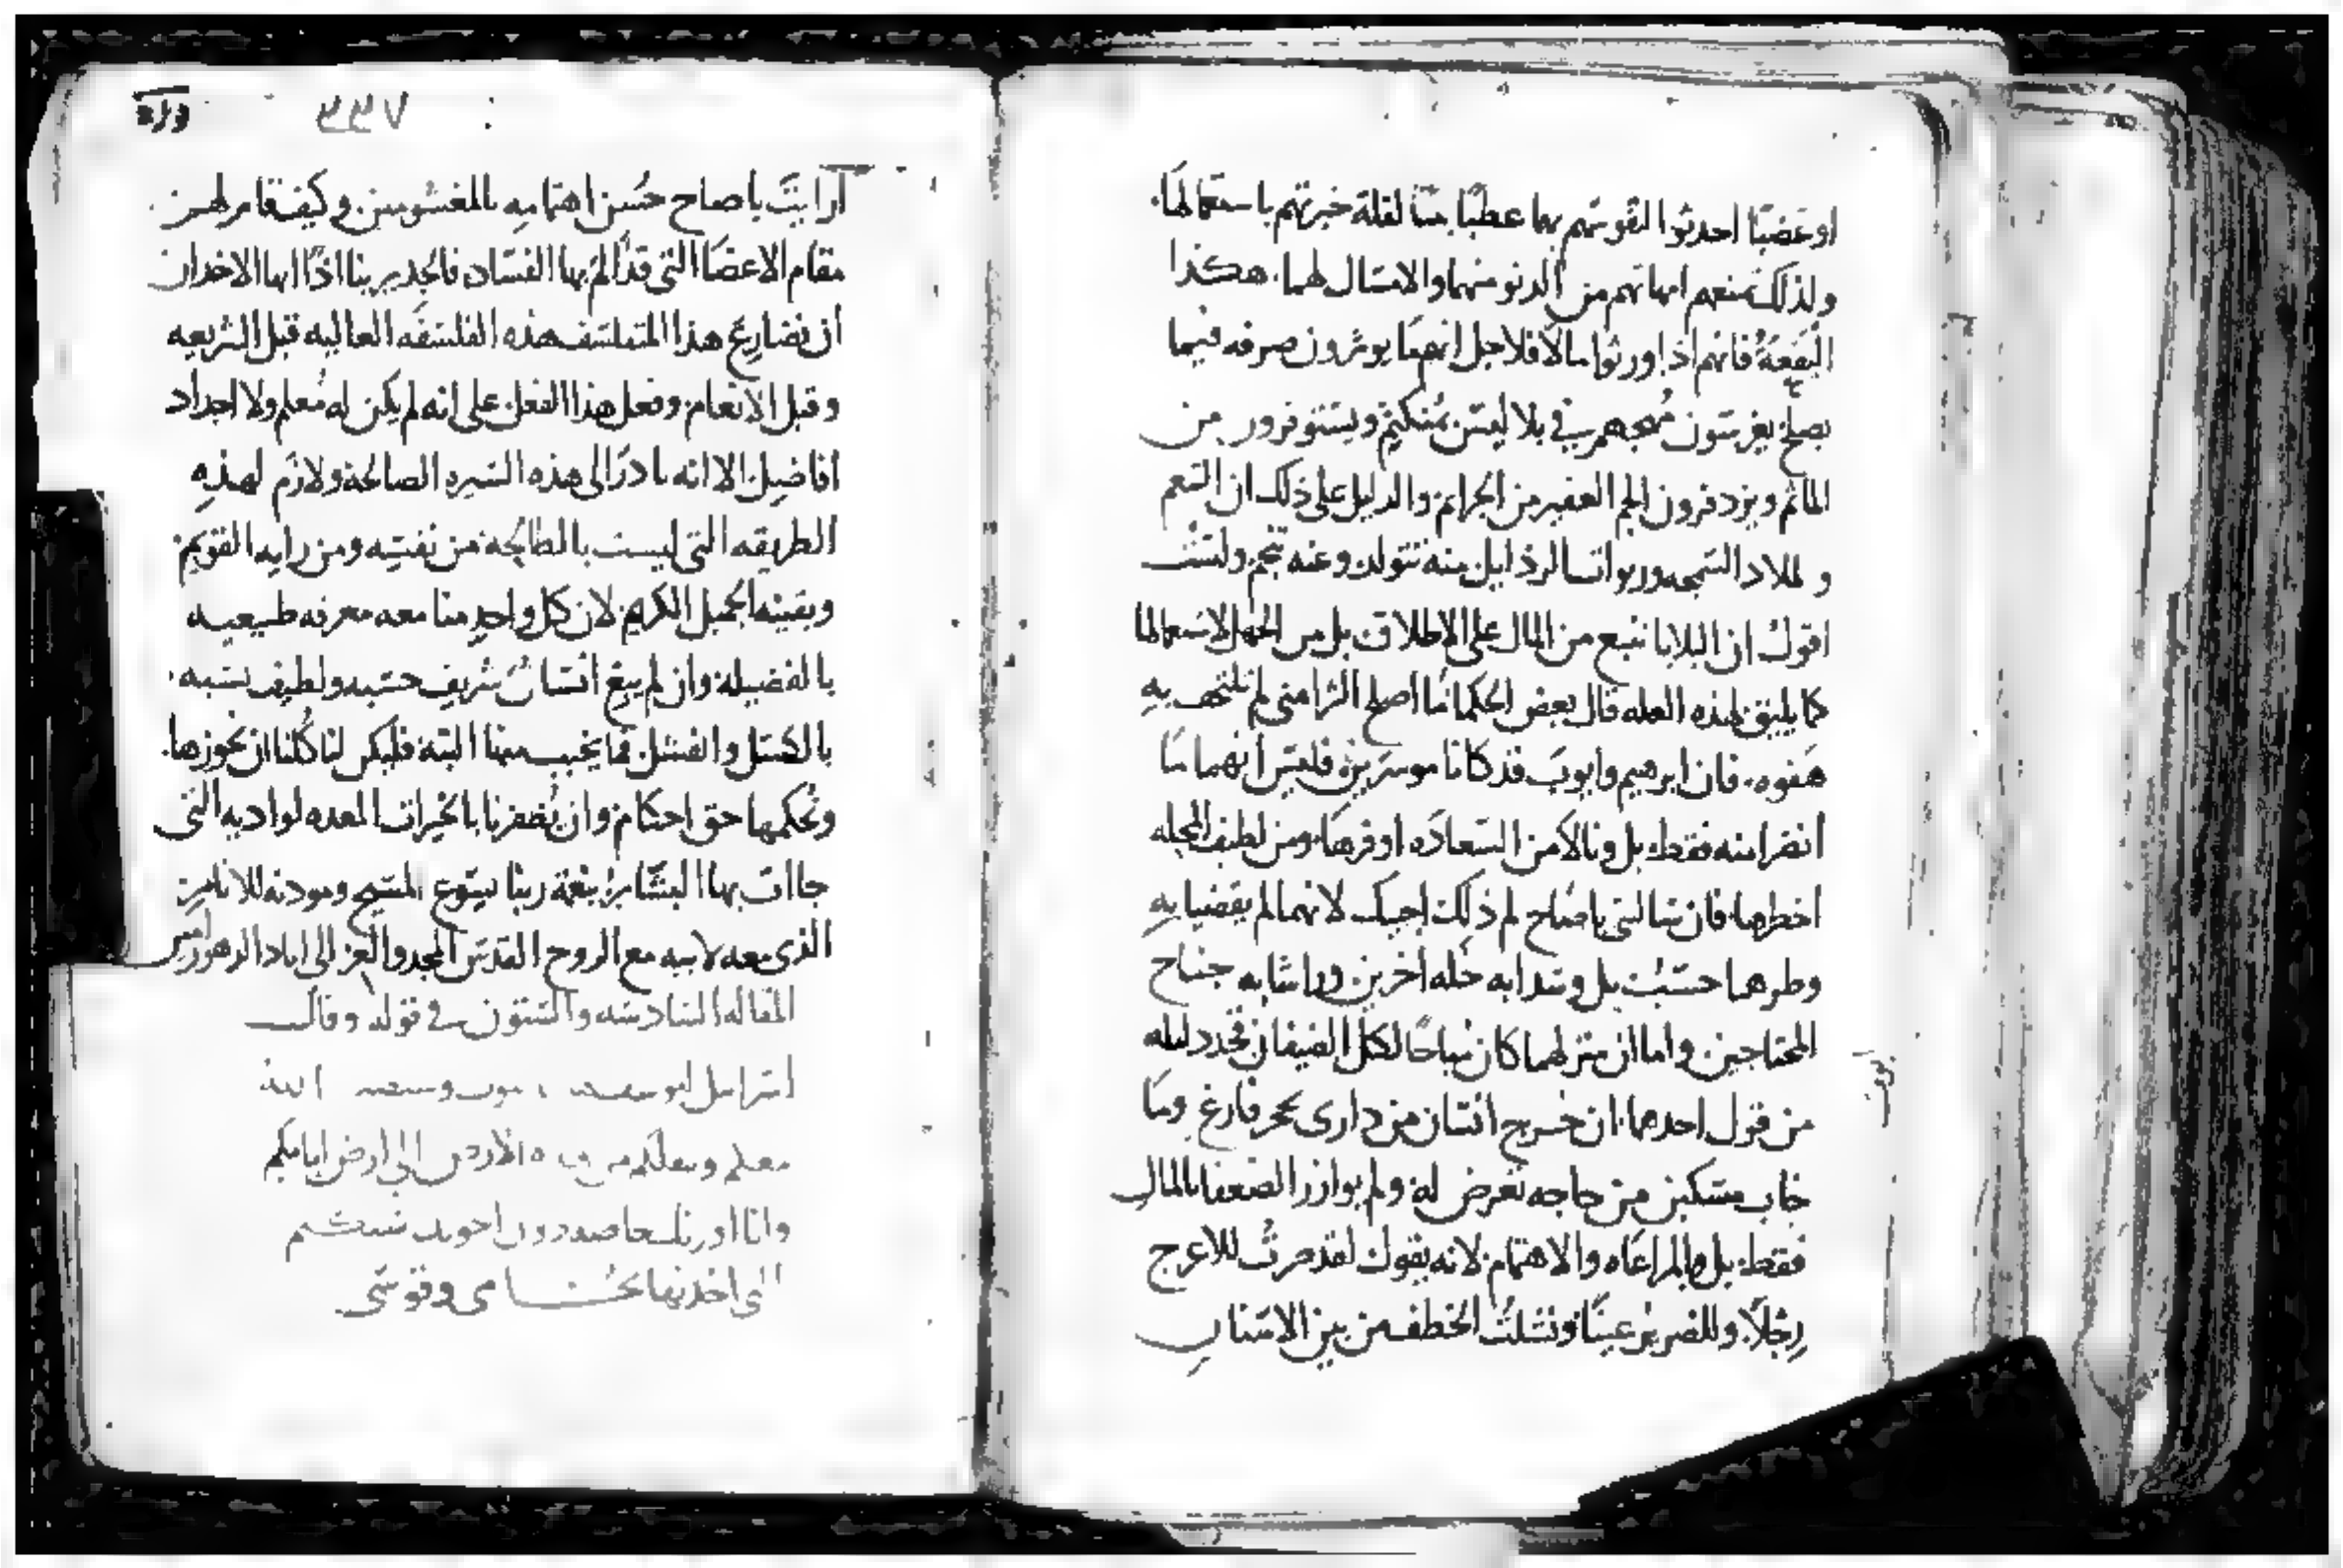 او عضبًا احدثوا لنفوسهم بهما عطبًا بينًا لقلة خبرتهم باستعمالها.
ولذلك تمنعهم امهاتهم من الدنو منهما والامتثال لهما. هكذا
فانهم اذا ورثوا مالاً فلاجل انهم يوثرون صرفه فيما
في بلا ليس بمنكتم ويستوفرون من
الماثم ويزدفرون الجم الغفير من الجرايم والدليل على ذلك ان التنعم
والملاد السمجه وربوات الرذايل منه تتولد وعنه تنجم ولست
اقول ان البلايا تنبع من المال على الاطلاق بل من الجهل لاستعمالها
كما يليق لهذه العله قال بعض الحكما ما اصلح الثرا متى لم تلتحف به
هفوه. فان ابرهيم وايوب قد كانا موسرين فليس انهما ما
انضرا منه فقط بل ونالا من السعاده اوفرها ومن لطيف
اخطرها. فان سالتني ياصاح لم ذلك اجبك لانهما لم يقضيا به
وطرهما حسب بل وسدا به خله اخرين وراشا به جناح
المحتاجين واما ان منزلهما كان مباحًا لكل الضيفان
من قول احدهما. ان خرج انسان من داري بحجر فارغ وما
خاب مسكين من حاجه تعرض له ولم يوازر الضعفا بالمال
فقط بل والمراعاه والاهتمام لانه يقول لقد صرت للاعرج
رجلاً وللضرير عينًا ونشلت الخطف من بين الاسنان
٣٣٧
ارايت ياصاح حسن اهتمامه بالمغشومين وكيف قام لهم
مقام الاعضا التي قد الم بها الفساد فالجدير بنا اذًا ايها الاخدان
ان نضارع هذا المتفلسف هذه الفلسفه العاليه قبل الشريعه
وقبل الانعام وفعل هذا الفعل على انه لم يكن له معلم ولا اجداد
افاضل الا انه بادر الى هذه السيره الصالحة ولازم لهذه
الطريقه التي ليست بالطالحة من نفسه ومن رايه القويم
الجميل الكريم لان كل واحد منا معه معرفه طبيعيه
بالفضيله وان لم يبع انسان شريف حسبه ولطيف نسبه
بالكسل والفشل فما يخيب منها البته فليكن لنا كلنا ان نحوزها
ونحكمها حق احكام وان نضفرنا بالخيرات المعده لواديه التي
جاات بها البشاير بنعمة ربنا يسوع المسيح ومودته للانام
الذي معه لابيه مع الروح القدس المجد والعز الى اباد الدهور امين
المقاله السادسه والستون في قوله وقال
اسرايل ليوسف موت الله
معكم من الارض الى ارض ابايكم
وانا دون
التي اخذتها وقوسي